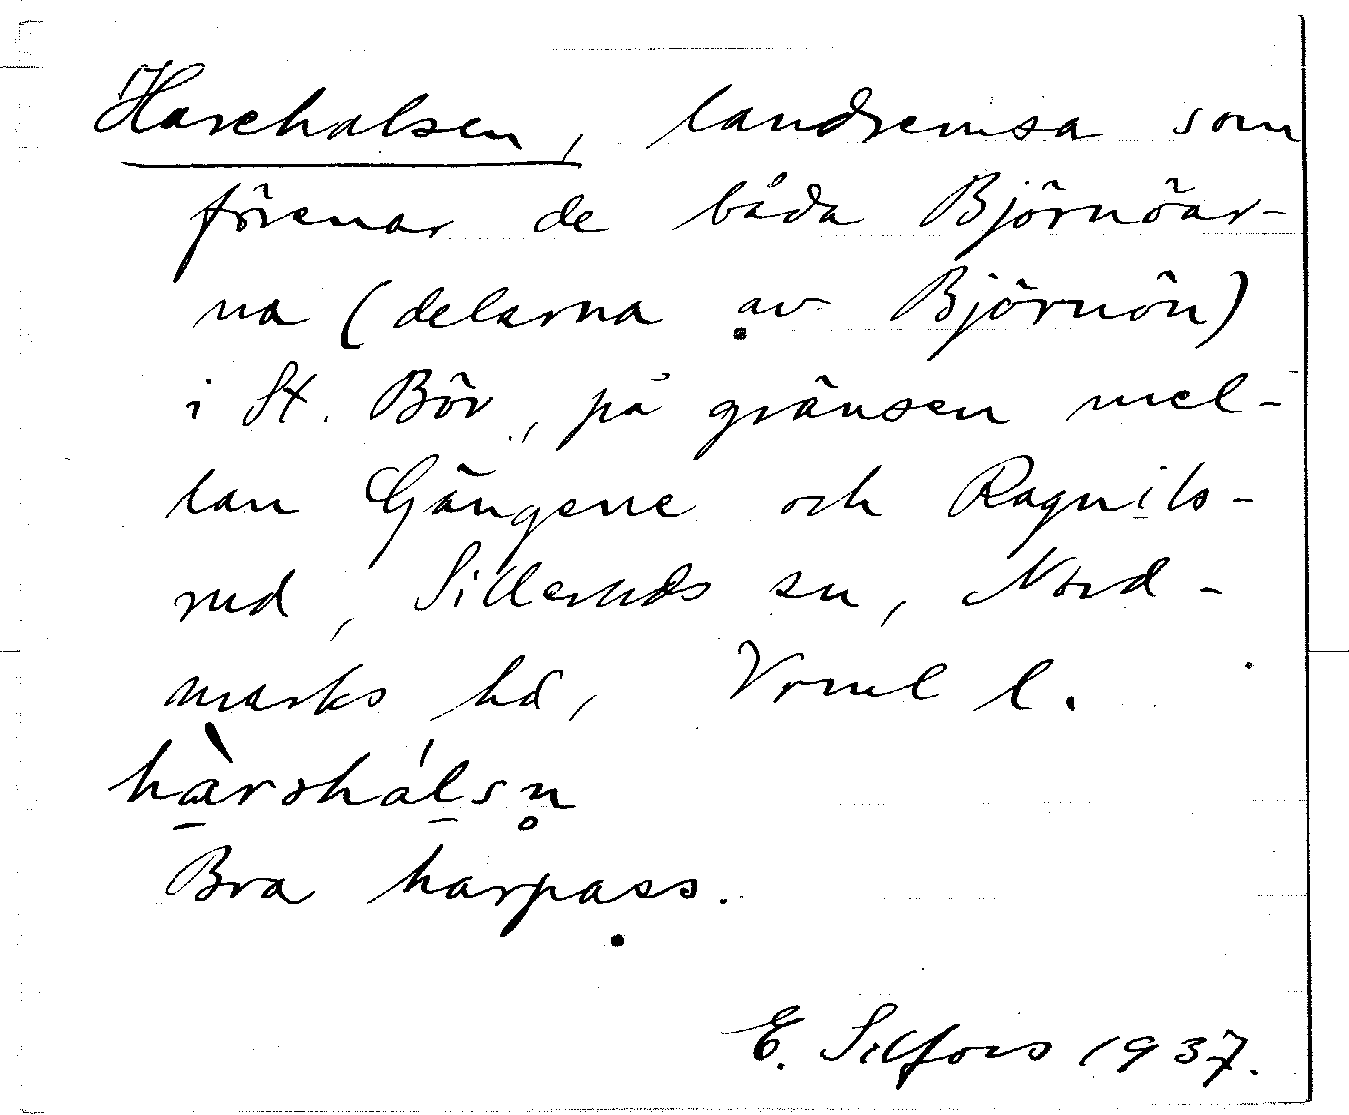 Harehalsen, landremsa som
förenar de båda Björnöar-
na (delarna av Björnön)
i St. Bör, på gränsen mel-
lan Gängene och Ragnils-
rud, Silleruds sn, Nord-
marks hd, Vrml l.
hàrəhálsn̥
Bra harpass.
E. Silfors 1937.